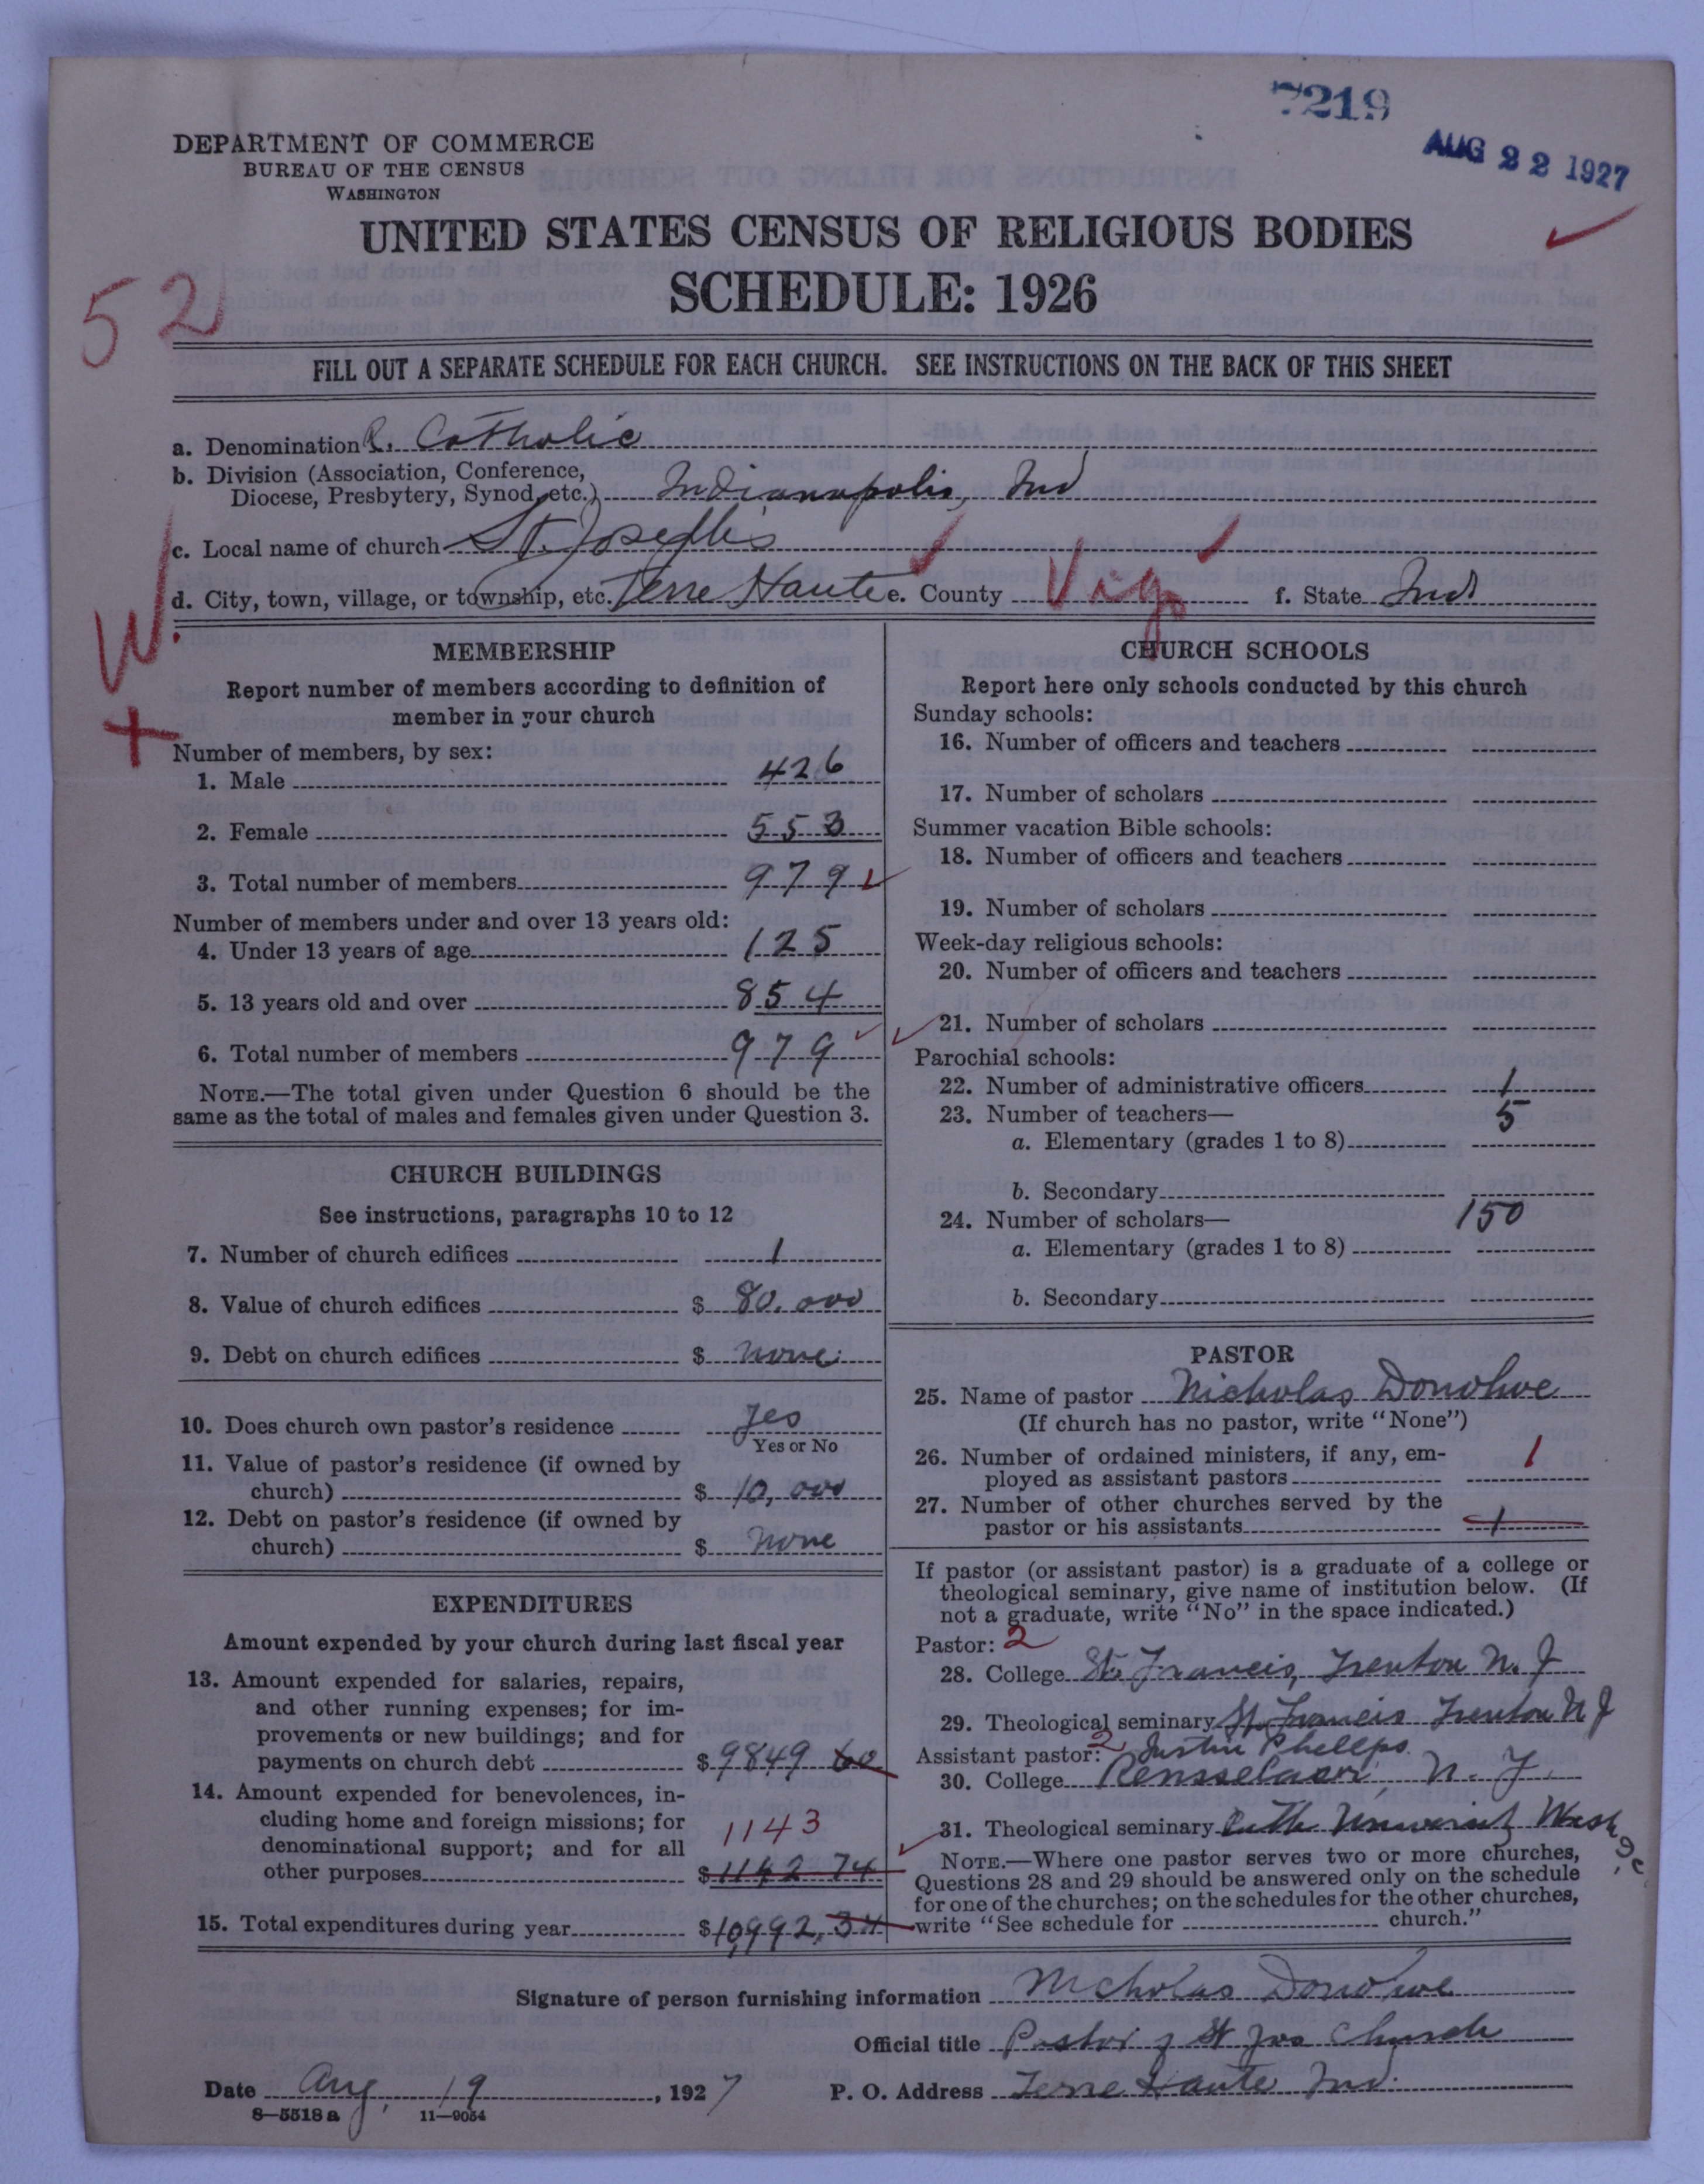 7219
AUG 22 1927
DEPARTMENT OF COMMERCE
BUREAU OF THE CENSUS
WASHINGTON
UNITED STATES CENSUS OF RELIGIOUS BODIES
SCHEDULE: 1926
52
FILL OUT A SEPARATE SCHEDULE FOR EACH CHURCH. SEE INSTRUCTIONS ON THE BACK OF THIS SHEET
a. Denomination R. Catholic
b. Division (Association, Conference,
Diocese, Presbytery, Synod, etc.) Indianapolis, Ind
c. Local name of church St. Joseph's
d. City, town, village, or township, etc. Terre Haute e. County Vigo f. State Ind
W.
+
MEMBERSHIP
Report number of members according to definition of
member in your church
Number of members, by sex:
1. Male 426
2. Female 553
3. Total number of members 979
Number of members under and over 13 years old:
4. Under 13 years of age 125
5. 13 years old and over 854
6. Total number of members 979
NOTE.—The total given under Question 6 should be the
same as the total of males and females given under Question 3.
CHURCH BUILDINGS
See instructions, paragraphs 10 to 12
7. Number of church edifices 1
8. Value of church edifices $ 80,000
9. Debt on church edifices $ none
10. Does church own pastor's residence Yes
Yes or No
11. Value of pastor's residence (if owned by
church) $ 10,000
12. Debt on pastor's residence (if owned by
church) $ None
EXPENDITURES
Amount expended by your church during last fiscal year
13. Amount expended for salaries, repairs,
and other running expenses; for im-
provements or new buildings; and for
payments on church debt $ 9849 60
14. Amount expended for benevolences, in-
cluding home and foreign missions; for
denominational support; and for all
1143
other purposes $ 1142 74
15. Total expenditures during year $ 10,992,34
CHURCH SCHOOLS
Report here only schools conducted by this church
Sunday schools:
16. Number of officers and teachers
17. Number of scholars
Summer vacation Bible schools:
18. Number of officers and teachers
19. Number of scholars
Week-day religious schools:
20. Number of officers and teachers
21. Number of scholars
Parochial schools:
22. Number of administrative officers 1
23. Number of teachers— 5
a. Elementary (grades 1 to 8)
b. Secondary
24. Number of scholars— 150
a. Elementary (grades 1 to 8)
b. Secondary
PASTOR
25. Name of pastor Nicholas Donohoe
(If church has no pastor, write "None")
26. Number of ordained ministers, if any, em-
ployed as assistant pastors 1
27. Number of other churches served by the
pastor or his assistants 1
If pastor (or assistant pastor) is a graduate of a college or
theological seminary, give name of institution below. (If
not a graduate, write "No" in the space indicated.)
Pastor: 2
28. College St. Francis, Trenton N. J
29. Theological seminary St. Francis Trenton N J
Assistant pastor: 2 Justin Phellps
30. College Rensselaer, N. Y.
31. Theological seminary Cath University Wash D.C.
NOTE.—Where one pastor serves two or more churches,
Questions 28 and 29 should be answered only on the schedule
for one of the churches; on the schedules for the other churches,
write "See schedule for church."
Signature of person furnishing information Nicholas Donohoe
Official title Pastor of St Jos Church
Date Aug. 19, 1927 P. O. Address Terre Haute Ind.
8—5518a 11—9054